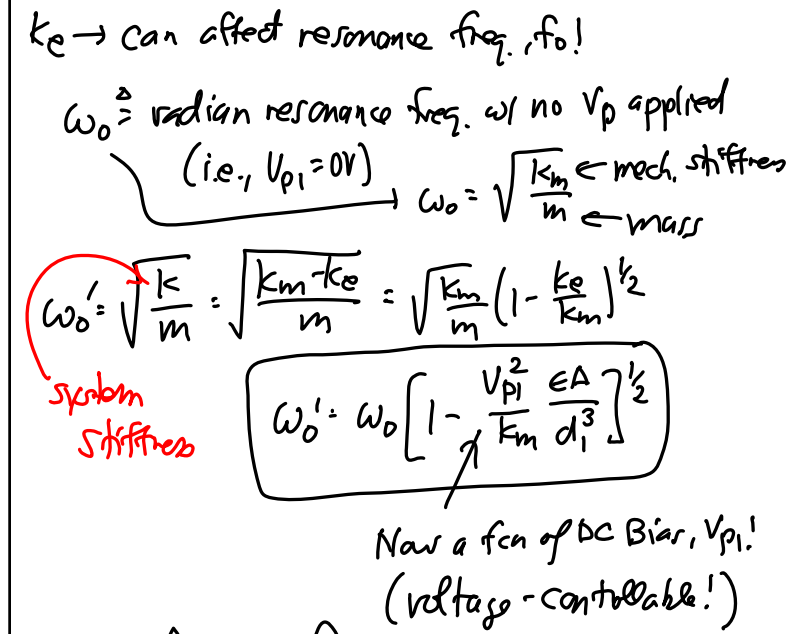 ke → can affect resonance freq., fo!
ω₀ ≜ radian resonance freq. w/ no Vp applied
(i.e., Vp1 = 0V) → ω₀ = √(km/m) ← mech. stiffness
← mass
ω₀' = √(k/m) = √((km - ke)/m) = √(km/m) (1 - ke/km)^½
system
stiffness
ω₀' = ω₀ [1 - (Vp1²/km) (∈A/d₁³)]^½
Now a fcn of DC Bias, Vp1!
(voltage-controllable!)